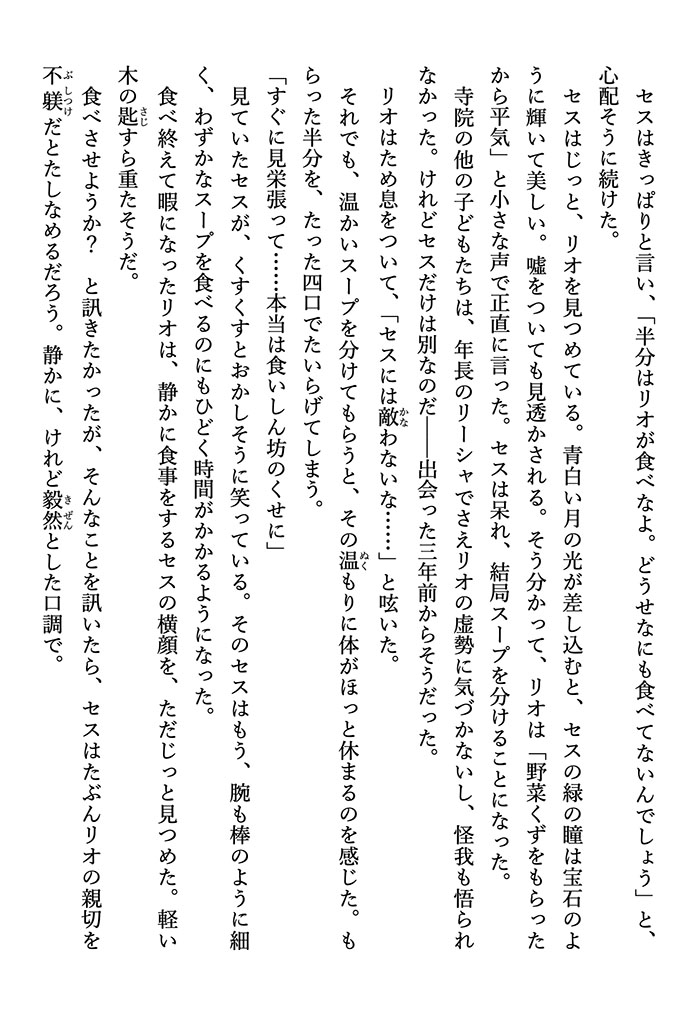 セスはきっぱりと言い、「半分はリオが食べなよ。どうせなにも食べてないんでしょう」と、
心配そうに続けた。
セスはじっと、リオを見つめている。青白い月の光が差し込むと、セスの緑の瞳は宝石のよ
うに輝いて美しい。嘘をついても見透かされる。そう分かって、リオは「野菜くずをもらった
から平気」と小さな声で正直に言った。セスは呆れ、結局スープを分けることになった。
寺院の他の子どもたちは、年長のリーシャでさえリオの虚勢に気づかないし、怪我も悟られ
なかった。けれどセスだけは別なのだ――出会った三年前からそうだった。
リオはため息をついて、「セスには敵わないな……」と呟いた。
それでも、温かいスープを分けてもらうと、その温もりに体がほっと休まるのを感じた。も
らった半分を、たった四口でたいらげてしまう。
「すぐに見栄張って……本当は食いしん坊のくせに」
見ていたセスが、くすくすとおかしそうに笑っている。そのセスはもう、腕も棒のように細
く、わずかなスープを食べるのにもひどく時間がかかるようになった。
食べ終えて暇になったリオは、静かに食事をするセスの横顔を、ただじっと見つめた。軽い
木の匙すら重たそうだ。
食べさせようか？　と訊きたかったが、そんなことを訊いたら、セスはたぶんリオの親切を
不躾だとたしなめるだろう。静かに、けれど毅然とした口調で。